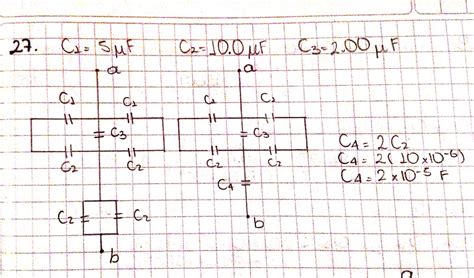 27. C1= 5 μF C2=10.0 μF C3=2.00 μF
a a
C1 C1 C1 C1
C3 C3
C2 C2 C2 C2
C4
C2 C2
b b
C4 = 2C2
C4 = 2(10 x10⁻⁶)
C4 = 2 x10⁻⁵ F